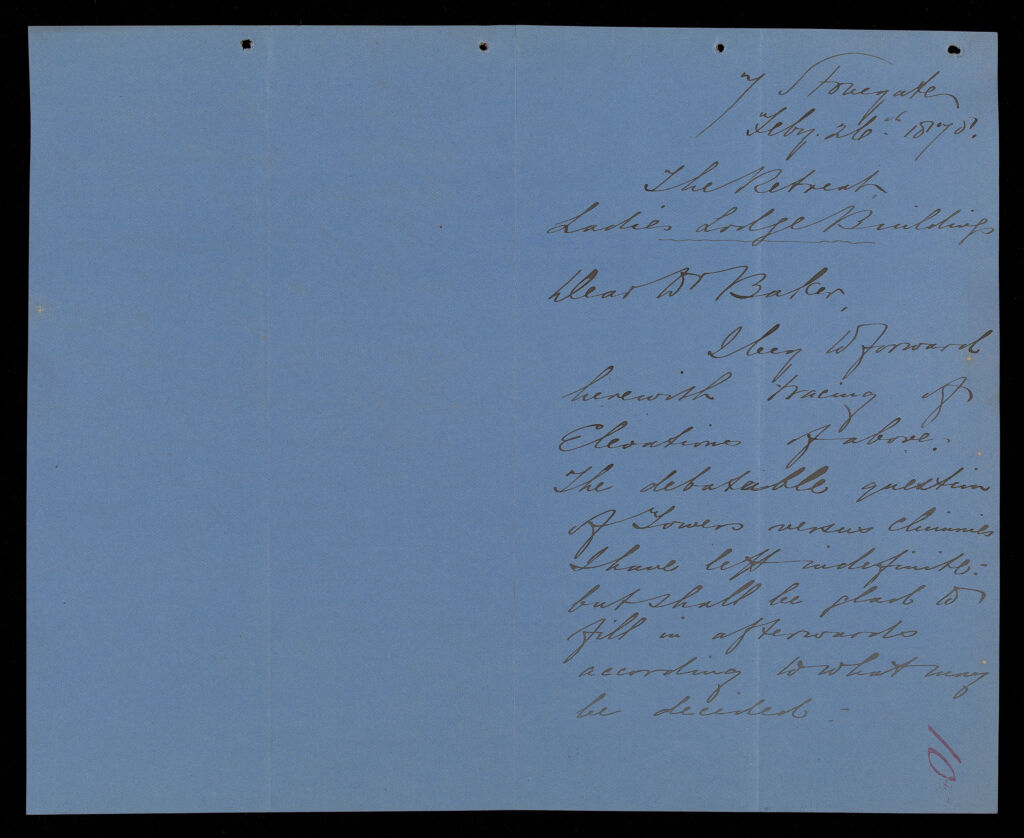 7 Stonegate
Feby. 26th 1878.
The Retreat
Ladies Lodge Buildings
Dear Dr Baker,
I beg to forward
herewith tracing of
Elevations of above.
The debateable question
of Towers versus Chimnies
I have left indefinite -
but shall be glad to
fill in afterwards
according to what may
be decided -
10